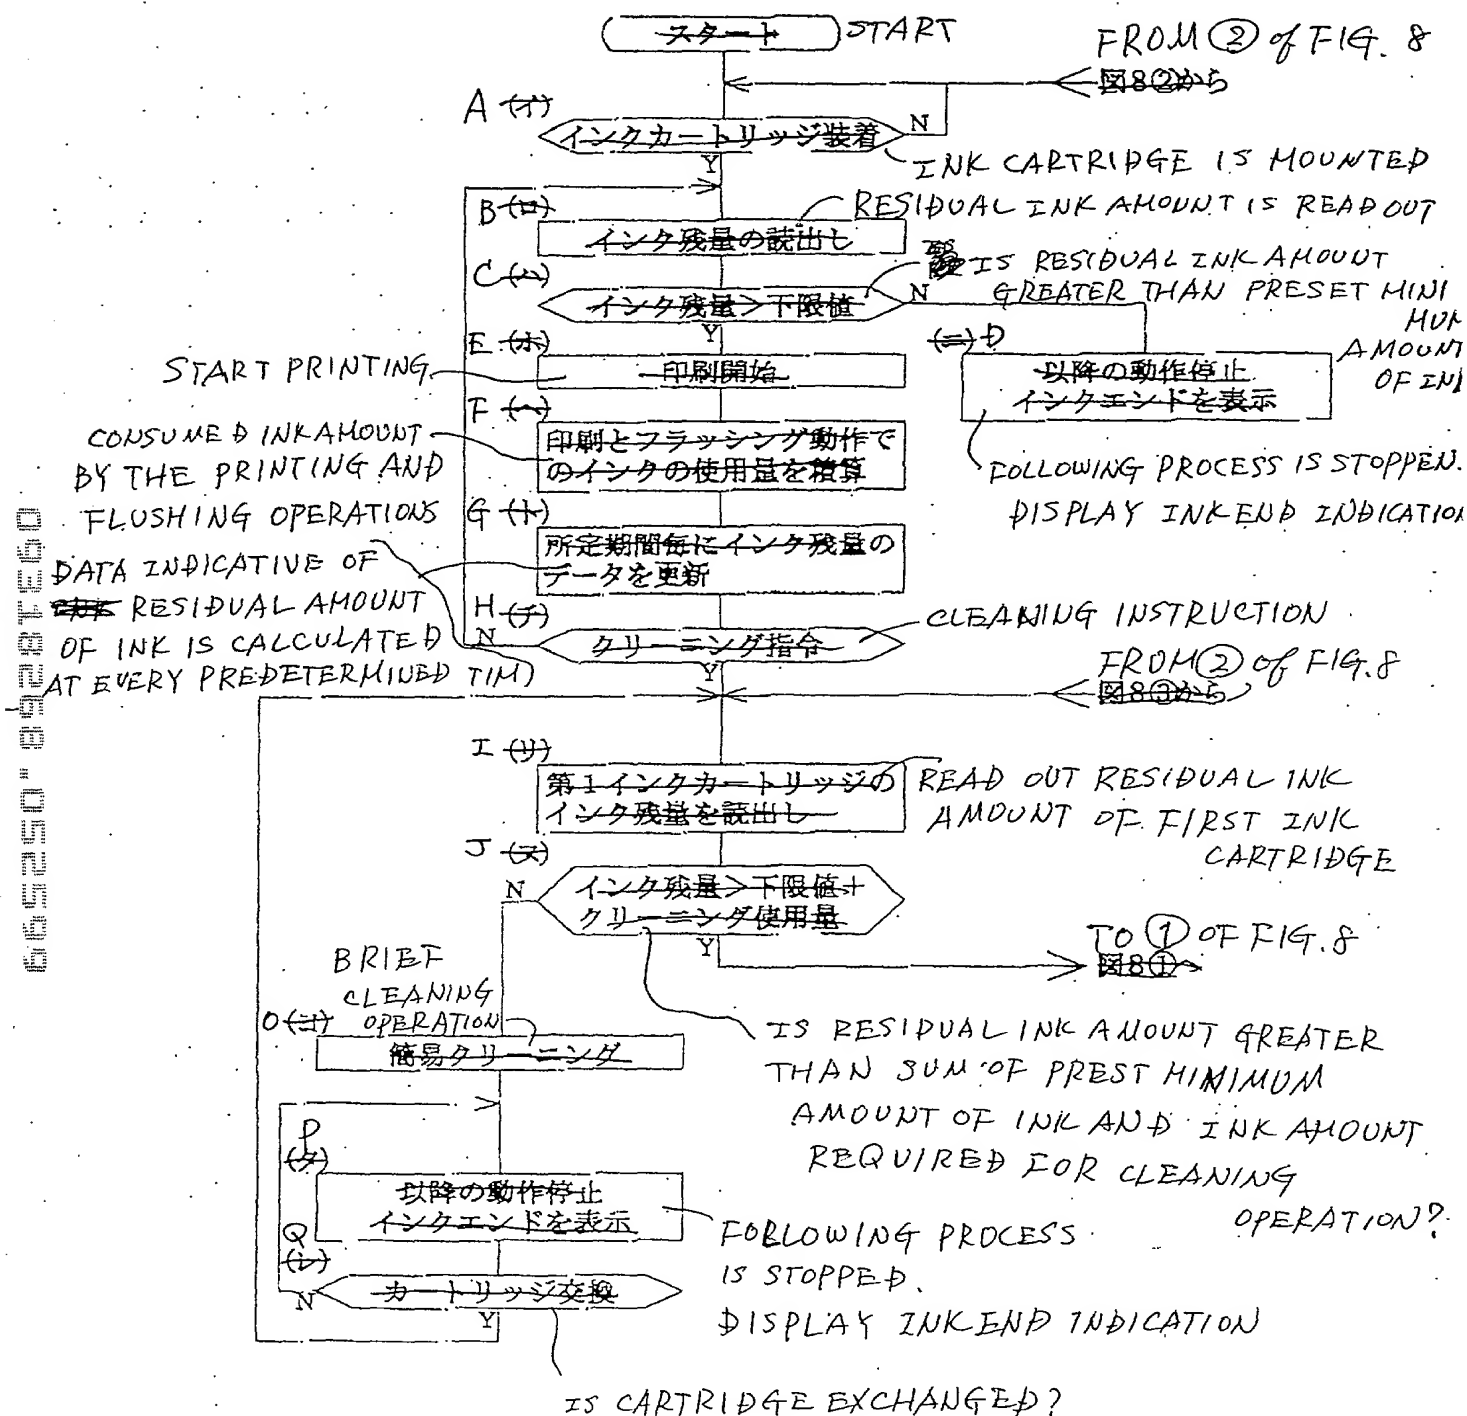 スタート START
FROM ② of FIG. 8
図8②から
A (イ)
インクカートリッジ装着 N
Y
INK CARTRIDGE IS MOUNTED
B (ロ)
RESIDUAL INK AMOUNT IS READ OUT
インク残量の読出し
C (ハ)
IS RESIDUAL INK AMOUNT
GREATER THAN PRESET MINI
MUM
AMOUNT
OF INK
インク残量>下限値 N
Y
E (ホ)
(ニ) D
START PRINTING
印刷開始
以降の動作停止
インクエンドを表示
F (ヘ)
CONSUMED INK AMOUNT
BY THE PRINTING AND
FLUSHING OPERATIONS
印刷とフラッシング動作で
のインクの使用量を積算
FOLLOWING PROCESS IS STOPPEN.
DISPLAY INK END INDICATION
G (ト)
所定期間毎にインク残量の
データを更新
DATA INDICATIVE OF
RESIDUAL AMOUNT
OF INK IS CALCULATED
AT EVERY PREDETERMINED TIM)
H (チ)
N
クリーニング指令
Y
CLEANING INSTRUCTION
FROM ② of FIG. 8
図8③から
I (リ)
第1インクカートリッジの
インク残量を読出し
READ OUT RESIDUAL INK
AMOUNT OF FIRST INK
CARTRIDGE
J (ヌ)
N
インク残量>下限値+
クリーニング使用量
Y
TO ① OF FIG. 8
図8①へ
BRIEF
CLEANING
OPERATION
O (ヨ)
簡易クリーニング
IS RESIDUAL INK AMOUNT GREATER
THAN SUM OF PREST MINIMUM
AMOUNT OF INK AND INK AMOUNT
REQUIRED FOR CLEANING
OPERATION?
P
(タ)
以降の動作停止
インクエンドを表示
FOLLOWING PROCESS
IS STOPPED.
DISPLAY INK END INDICATION
Q
(レ)
N
カートリッジ交換
Y
IS CARTRIDGE EXCHANGED?
09318258.052599